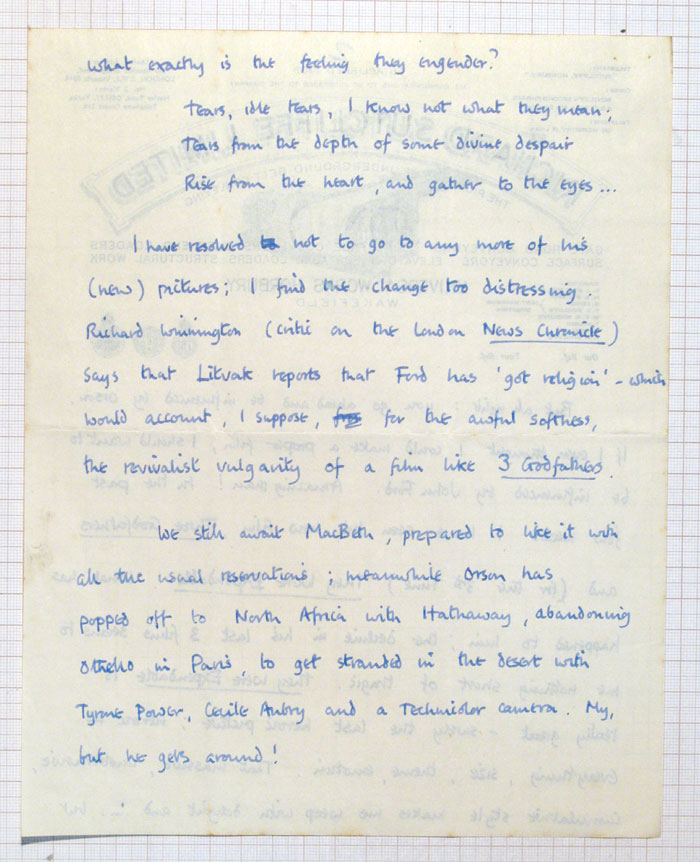 what exactly is the feeling they engender?
Tears, idle tears, I know not what they mean;
Tears from the depth of some divine despair
Rise from the heart, and gather to the eyes ...
I have resolved to not to go to any more of his
(new) pictures; I find the change too distressing.
Richard Winnington (critic on the London News Chronicle)
says that Litvak reports that Ford has 'got religion' - which
would account, I suppose, for the awful softness,
the revivalist vulgarity of a film like 3 Godfathers.
We still await MacBeth, prepared to like it with
all the usual reservations; meanwhile Orson has
popped off to North Africa with Hathaway, abandoning
Othello in Paris, to get stranded in the desert with
Tyrone Power, Cecile Aubry and a Technicolor camera. My,
but he gets around!